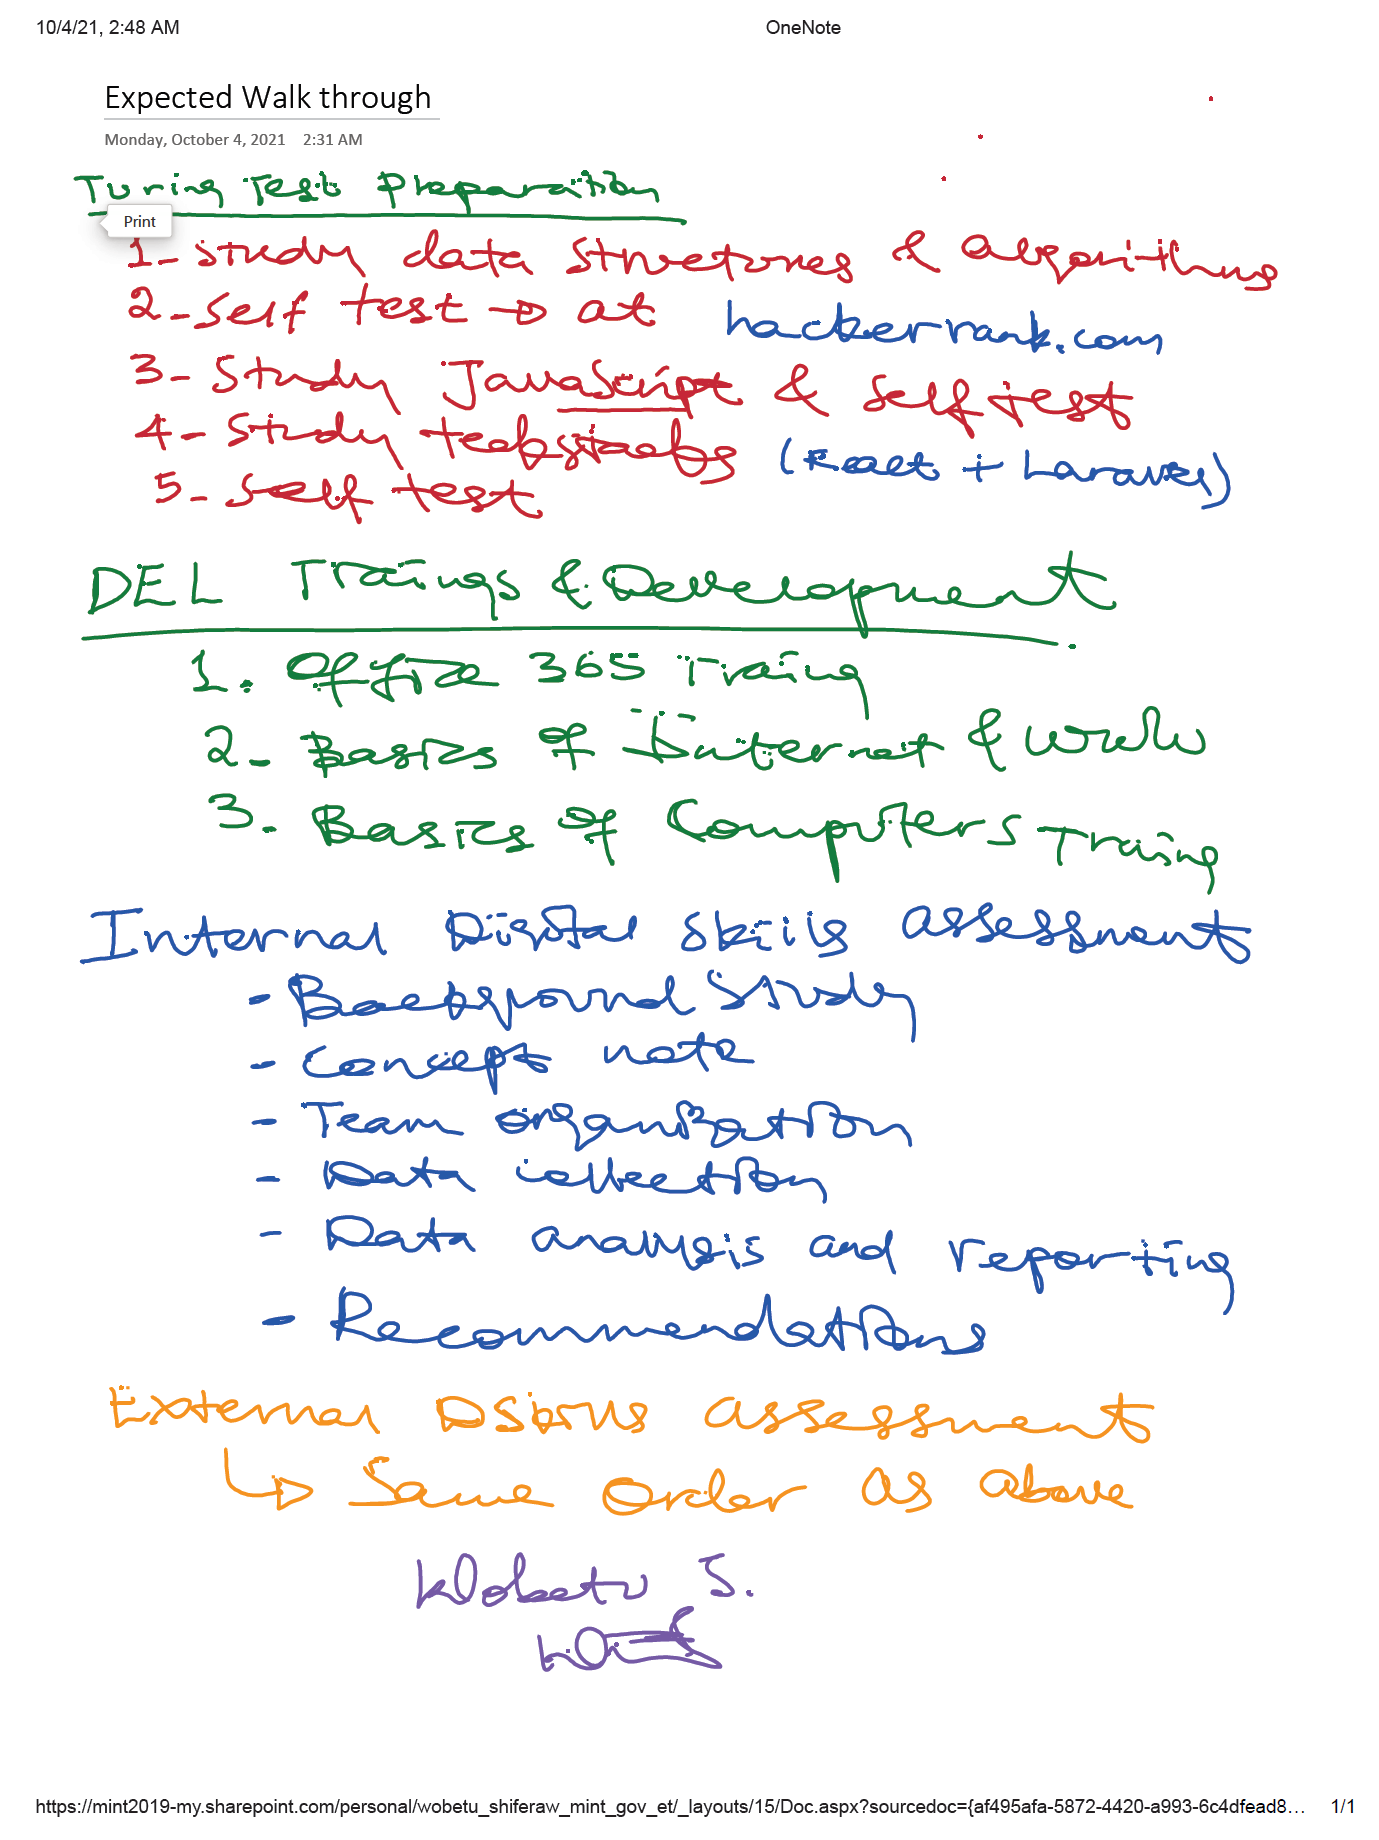 10/4/21, 2:48 AM OneNote
Expected Walk through
Monday, October 4, 2021 2:31 AM
Turing Test Preparation
Print
1- Study data structures & algorithms
2- Self test → at hackerrank.com
3- Study JavaScript & Self test
4- Study techstacks (React + Laravel)
5- Self test
DEL Traings & Development
1. Office 365 Traing
2- Basics of Internet &
3- Basics of Computers Training
Internal Digital Skills assessment
- Background Study
- Concept note
- Team organization
- Data collection
- Data analysis and reporting
- Recommendations
External assessment
↳ Same Order as above
Wobetu S.
https://mint2019-my.sharepoint.com/personal/wobetu_shiferaw_mint_gov_et/_layouts/15/Doc.aspx?sourcedoc={af495afa-5872-4420-a993-6c4dfead8… 1/1